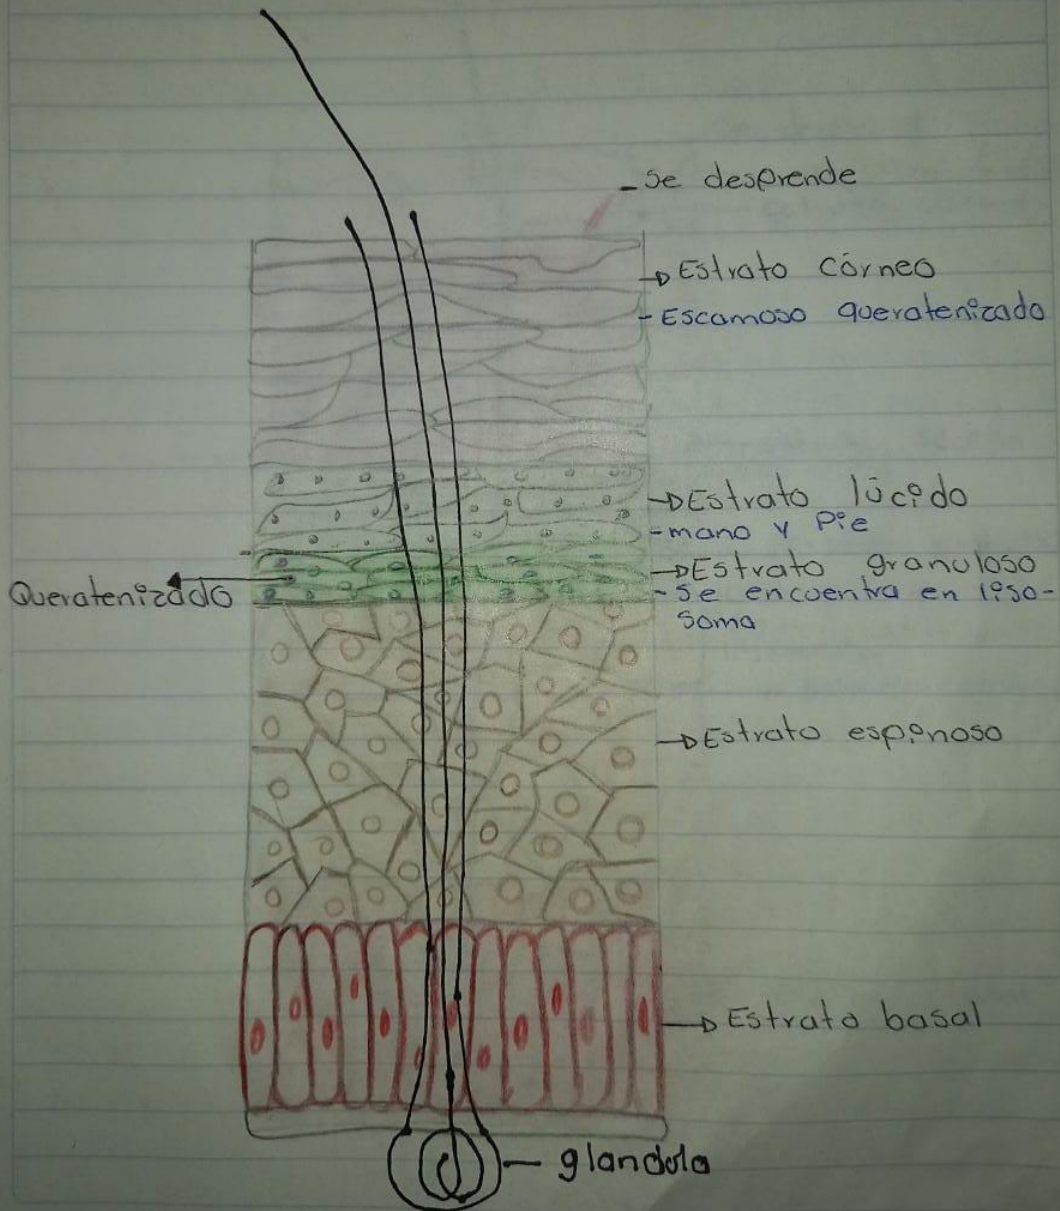 - Se desprende
Estrato córneo
- Escamoso queratenizado
Estrato lúcido
- mano y Pie
Estrato granuloso
- Se encuentra en liso-
soma
Queratenizado
Estrato espinoso
Estrato basal
glandula